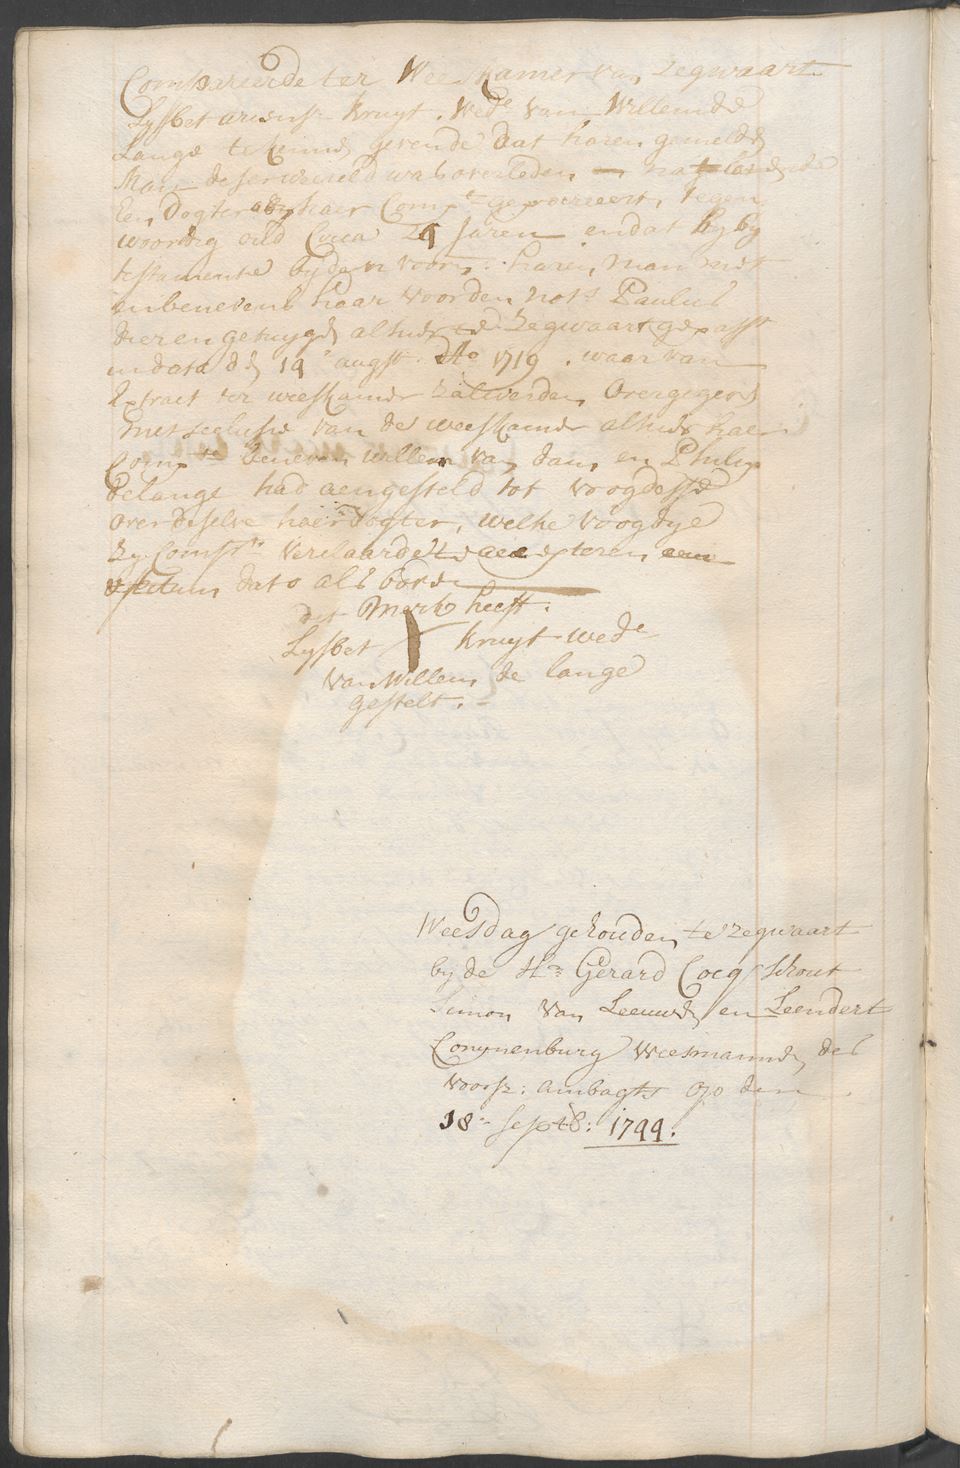 Compareerde ter Weeskamer van Zegwaart
Lysbet arisens: kruyt. Wede van Willem de
Lange te kenne gevende dat haren gemelde
Man deser wereld was overleden nalatende
Een Dogter by haer Compte geprocreert, tegen
woordig oud Circa Jaren en dat hy by
testamente by den voorn: haren man met
en benevens haar voor den nots Paulus
en getuyge alhier Zegwaart gepasst
in data den 19e augst Ao 1719. waar van
Extract ter weeskamer zal werden Overgegeven
met seclusie van de weeskamer alhier haer
Compte beneven willem van dam en Philip
de lange had aengesteld tot voogdesse
over deselve haer dogter, welke voogdye
Zy Compte verclaarde te accepteren
Actum dato als boven
dit Merk heeft
Lysbet kruyt wede
van Willem de lange
gestelt.
Weesdag gehouden te zegwaart
by de Hr Gerard Cocq schout
Simon van Leeuwen en Leendert
Conynenburg Weesmannen des
voorsz: ambagts op den
18e Septb: 1744.